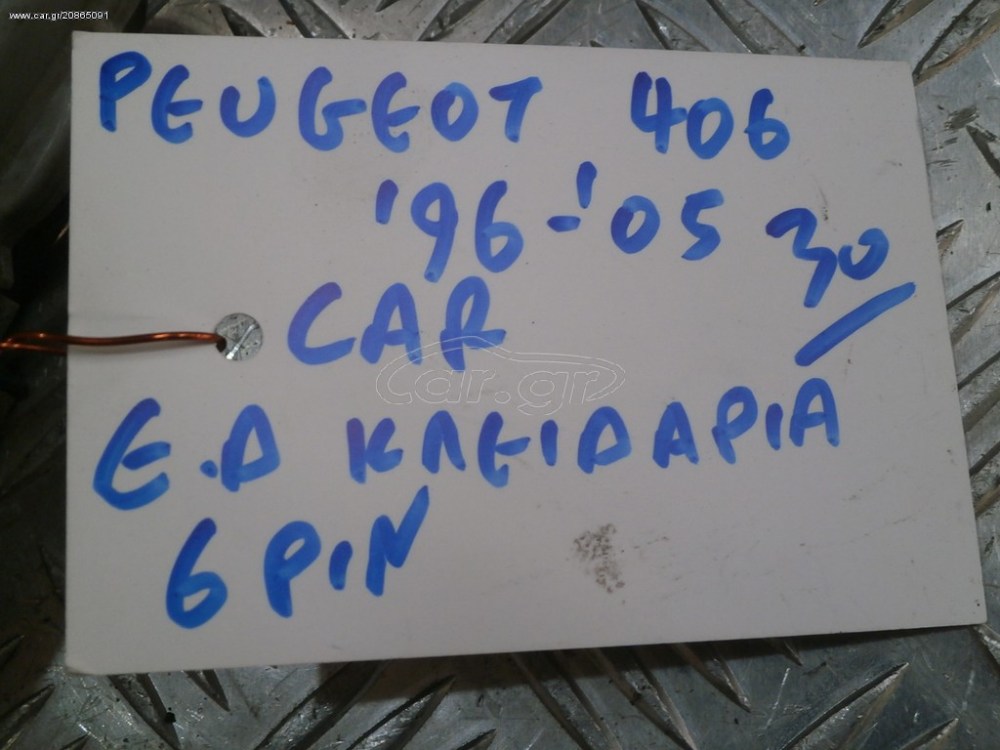 www.car.gr/20865091
PEUGEOT 406
'96-'05 30
CAR
car.gr
Ε.Δ ΚΛΕΙΔΑΡΙΑ
6 PIN